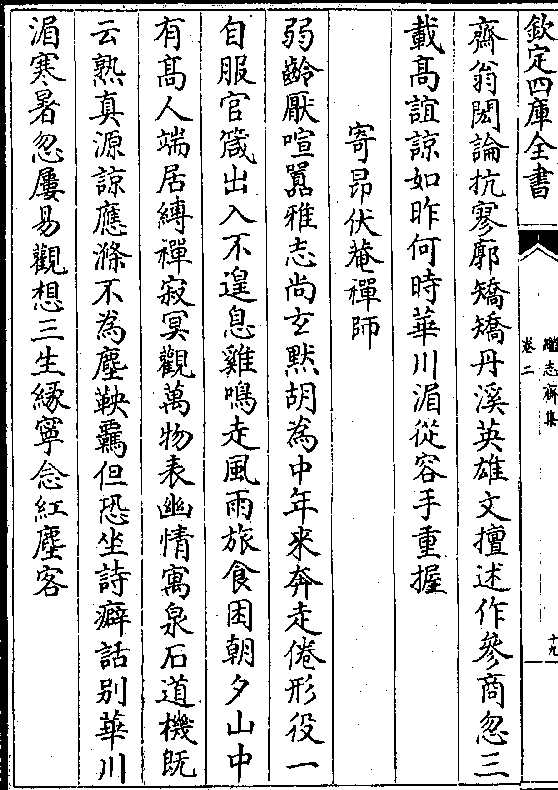 欽定四庫全書
蹟志齋集
卷二
十九
齋翁閎論抗寥廓矯矯丹溪英雄文擅述作參商忽三
載髙誼諒如昨何時華川湄從容手重握
寄昂伏菴禪師
弱齡厭喧囂雅志尚玄默胡為中年来奔走倦形役一
自服官箴出入不遑息雞鳴走風雨旅食困朝夕山中
有髙人端居縛禪寂冥觀萬物表幽情寓泉石道機既
云熟真源諒應滌不為塵鞅羈但恐坐詩癖話别華川
湄寒暑忽屢易觀想三生縁寧念紅塵客